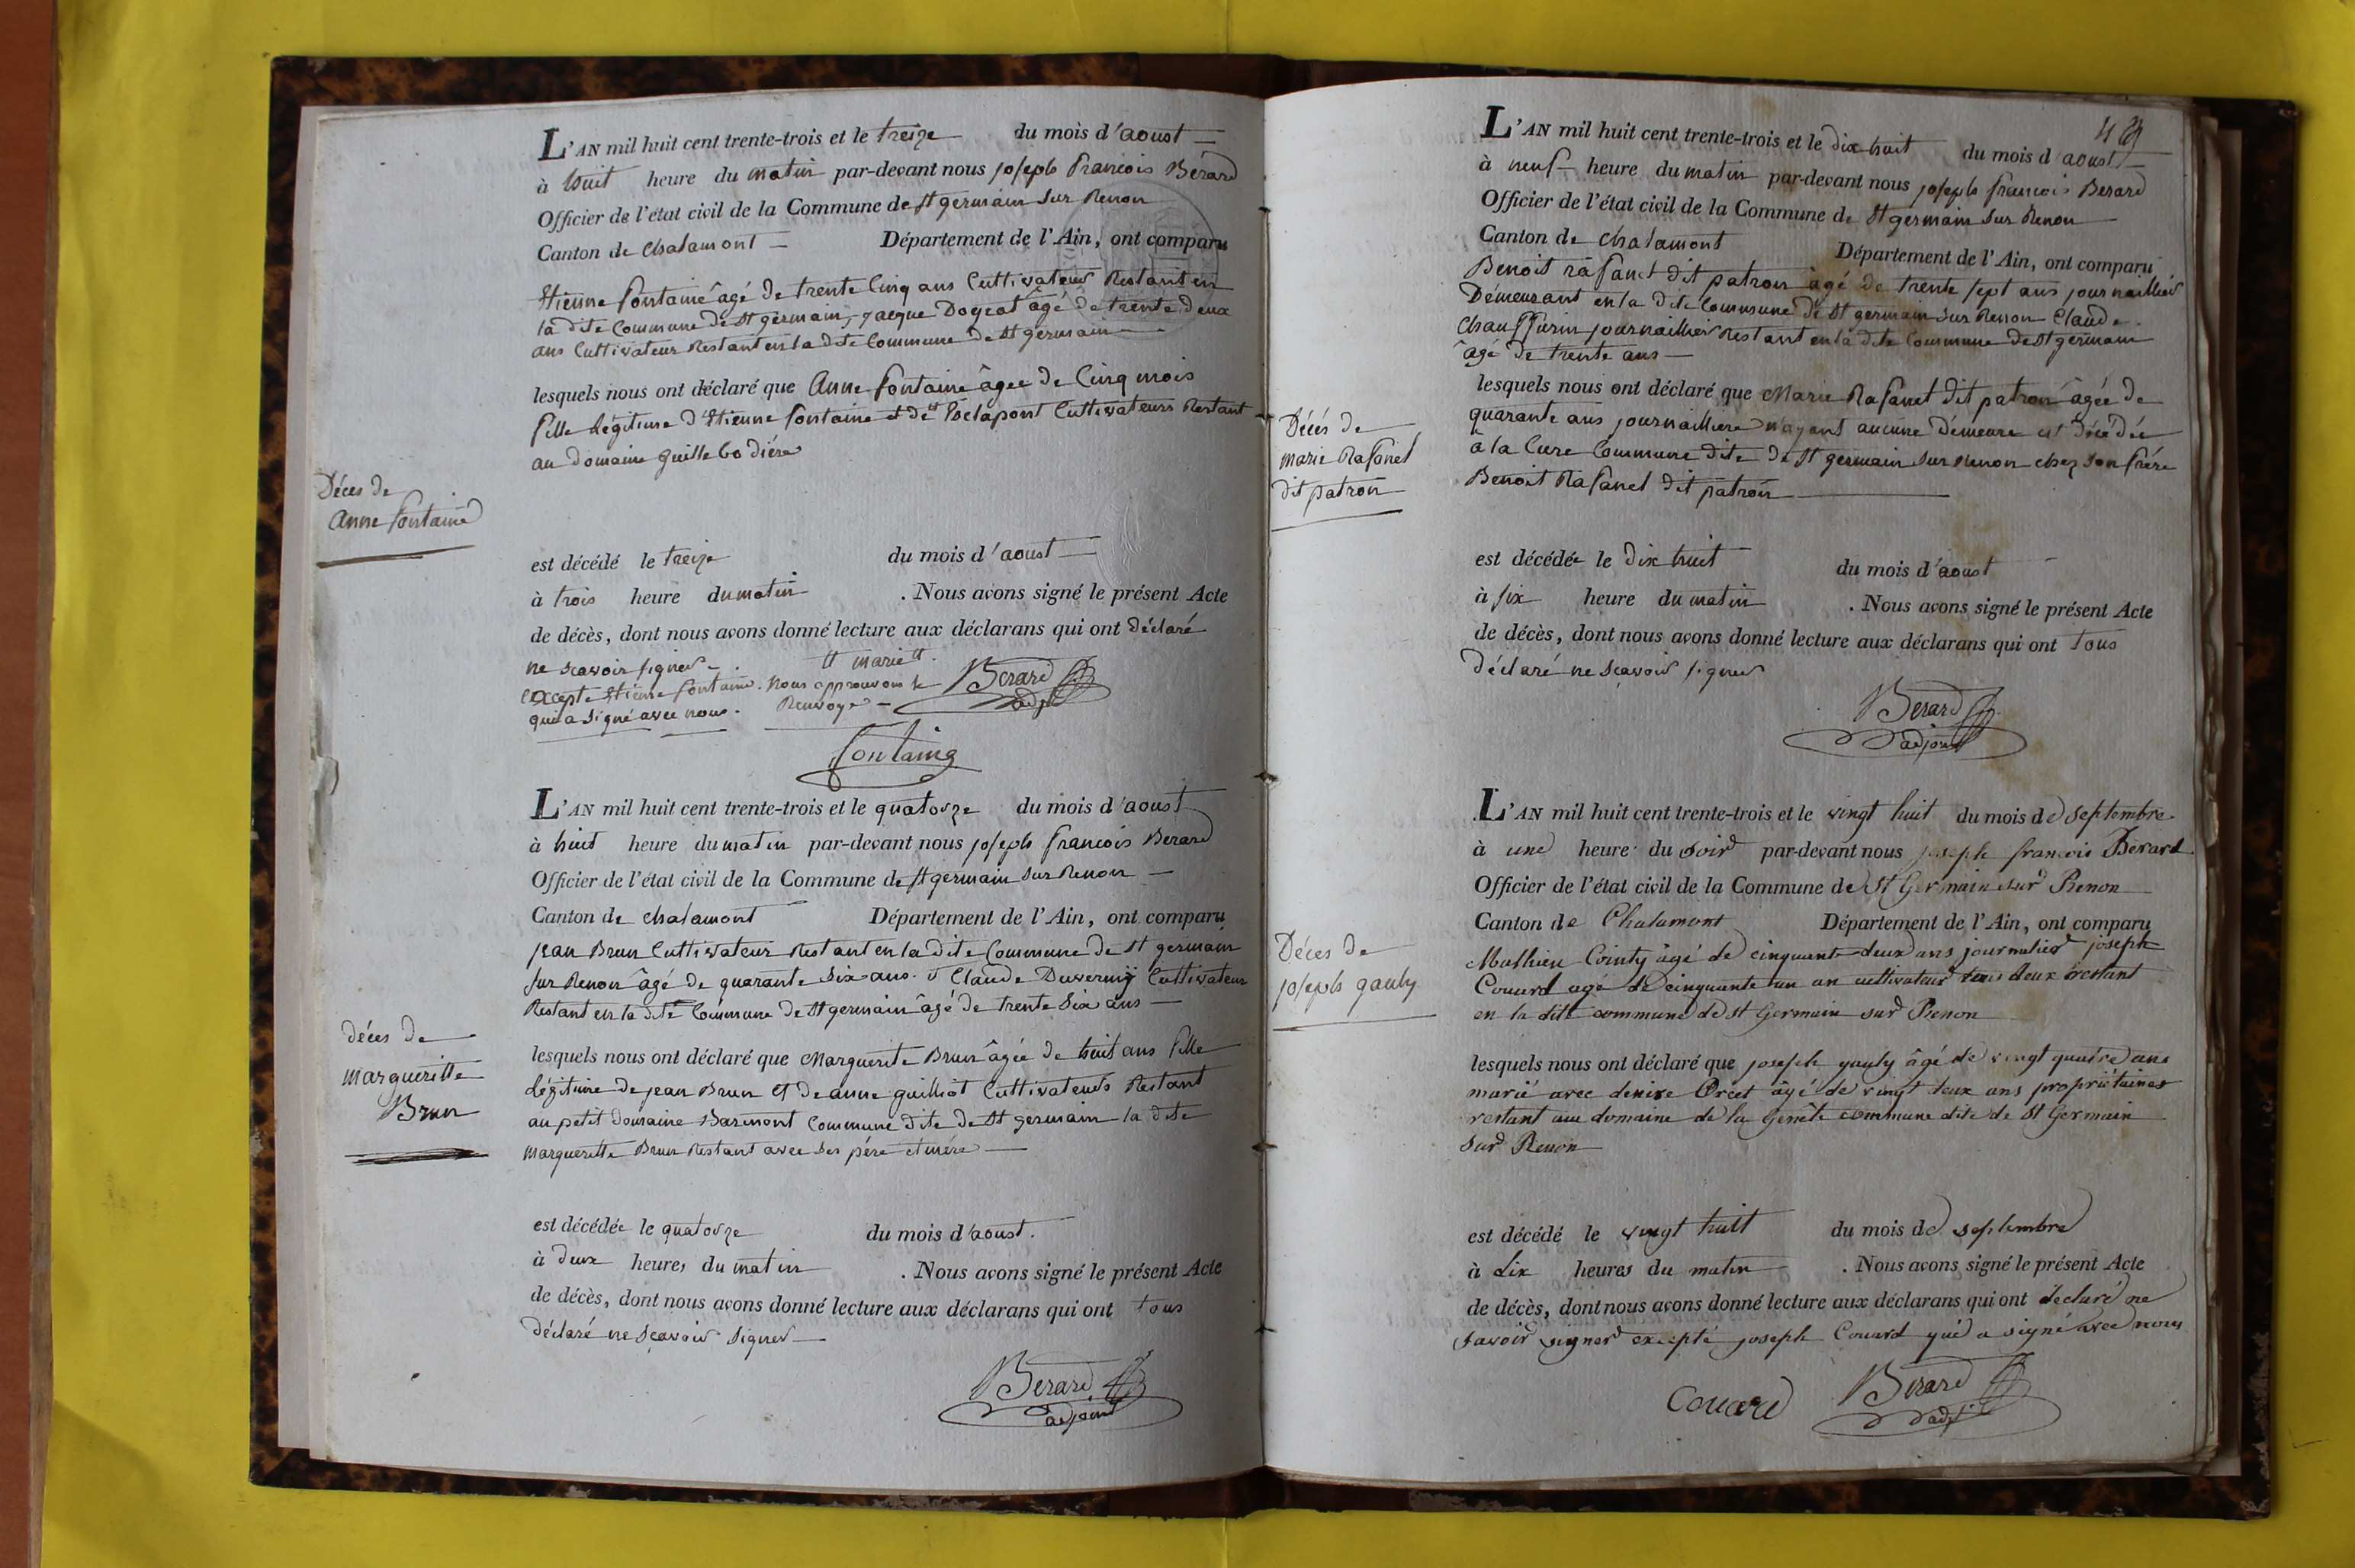 L'AN mil huit cent trente-trois et le treize du mois d'aoust
à huit heure du matin par-devant nous joseph francois Bérard
Officier de l'état civil de la Commune de St germain sur Renon
Canton de chalamont Département de l'Ain, ont comparu
Etienne fontaine âgé de trente Cinq ans Cultivateur Restant en
la dite Commune de St germain, jacque Doyeat âgé de trente deux
ans Cultivateur Restant en la dite Commune de St germain
lesquels nous ont déclaré que Anne fontaine âgee de Cinq mois
fille légitime d'Etienne fontaine et de Cultivateurs Restant
au domaine
Déces de
Anne fontaine
est décédé le treize du mois d'aoust
à trois heure du matin . Nous avons signé le présent Acte
de décès, dont nous avons donné lecture aux déclarans qui ont déclaré
ne scavoir signer tt marie tt.
excepte Etienne fontaine. Nous approuvons le Berard
qui a signé avec nous. Renvoye adjt
fontaine
L'AN mil huit cent trente-trois et le quatorze du mois d'aoust
à huit heure du matin par-devant nous joseph francois Berard
Officier de l'état civil de la Commune de St germain sur Renon
Canton de chalamont Département de l'Ain, ont comparu
jean Brun Cultivateur Restant en la dite Commune de St germain
sur Renon âgé de quarante six ans. Claude Duverniÿ Cultivateur
Restant en la dite Commune de St germain âgé de trente Six ans
déces de
margueritte
Brun
lesquels nous ont déclaré que Marguerite Brun âgée de huit ans fille
légitime de jean Brun et de anne guilliot Cultivateurs Restant
au petit domaine Barmont Commune dite de St germain la dite
marguerette Brun Restant avec ses pére et mére
est décédée le quatorze du mois d'aoust.
à deux heures du matin . Nous avons signé le présent Acte
de décès, dont nous avons donné lecture aux déclarans qui ont tous
déclaré ne sçavoir signer
Berard
adjoint
L'AN mil huit cent trente-trois et le dix huit du mois d'aoust
à neuf heure du matin par-devant nous joseph francois Berard
Officier de l'état civil de la Commune de St germain sur Renon
Canton de chalamont Département de l'Ain, ont comparu
Benoit rafanel dit patron âgé de trente sept ans journaillier
Démeurant en la dite Commune de St germain sur Renon Claude
journaillier Restant en la dite Commune de St germain
âgé de trente ans
Décés de
marie Rafanel
dit patron
lesquels nous ont déclaré que Marie Rafanel dit patron âgée de
quarante ans journailliere n'ayant aucune démeure est décédée
a la Cure Commune dite de St germain sur Renon chez son frére
Benoit Rafanel dit patron
est décédée le dix huit du mois d'aoust
à six heure du matin . Nous avons signé le présent Acte
de décès, dont nous avons donné lecture aux déclarans qui ont tous
déclaré ne sçavoir signer
Berard
adjoint
L'AN mil huit cent trente-trois et le vingt huit du mois de septembre
à une heure du soir par-devant nous joseph francois Berard
Officier de l'état civil de la Commune de St Germain sur Renon
Canton de Chalamont Département de l'Ain, ont comparu
Mathieu Cointy âgé de cinquante deux ans journalier joseph
Couard agé de cinquante un an cultivateur tous deux restant
en la dite commune de St Germain sur Renon
Déces de
joseph gauly
lesquels nous ont déclaré que joseph gauly âgé de vingt quatre ans
marié avec denise Orcet âgé de vingt deux ans propriétaires
restant au domaine de la Genête commune dite de St Germain
sur Renon
est décédé le vingt huit du mois de septembre
à dix heures du matin . Nous avons signé le présent Acte
de décès, dont nous avons donné lecture aux déclarans qui ont déclaré ne
savoir signer excepté joseph Couard qui a signé avec nous
Couard Berard
adjt